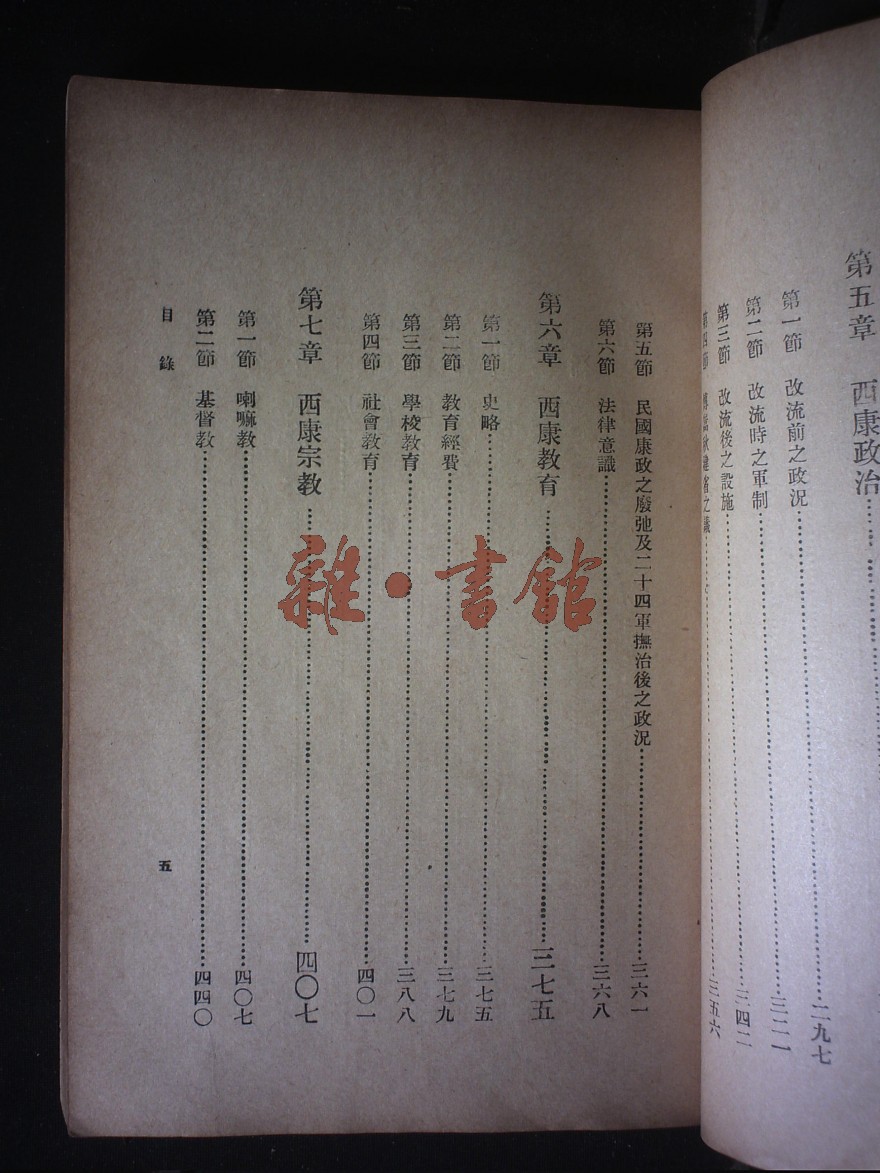 第五章　西康政治…………
第一節　改流前之政況…………二九七
第二節　改流時之軍制…………三二一
第三節　改流後之設施…………三四二
第四節　傅嵩炑建省之議…………三五六
第五節　民國康政之廢弛及二十四軍撫治後之政況…………三六一
第六節　法律意識…………三六八
第六章　西康教育…………三七五
第一節　史略…………三七五
第二節　教育經費…………三七九
第三節　學校教育…………三八八
第四節　社會教育…………四〇一
第七章　西康宗教…………四〇七
第一節　喇嘛教…………四〇七
第二節　基督教…………四四〇
目錄
五
雜·書館